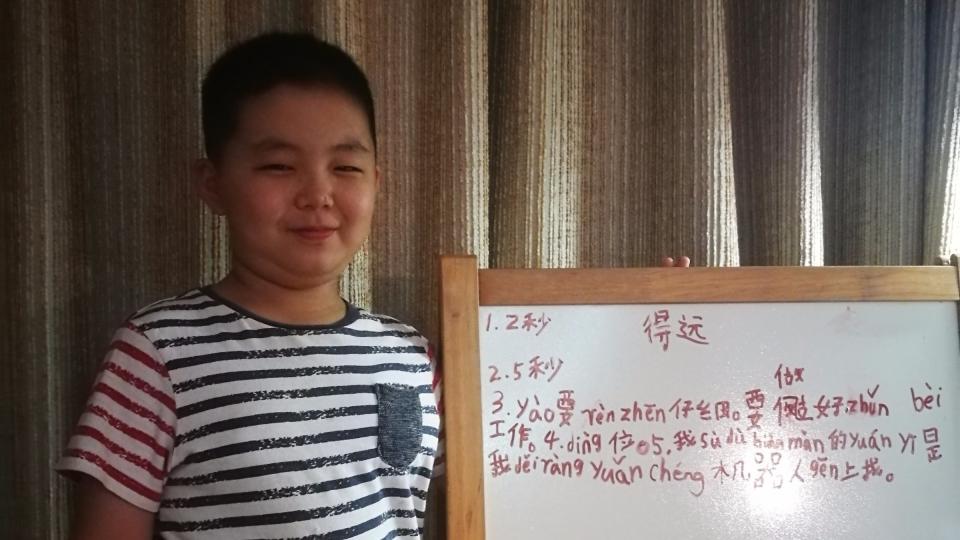 1.2秒 得远
2.5秒
做
3.yào要rènzhēn 。要 好zhǔn bèi
工作。4.dìng位。5.我sù dù biàn màn的yuán yī是
我děiràng yuǎn chéng 机器人gēn上我。